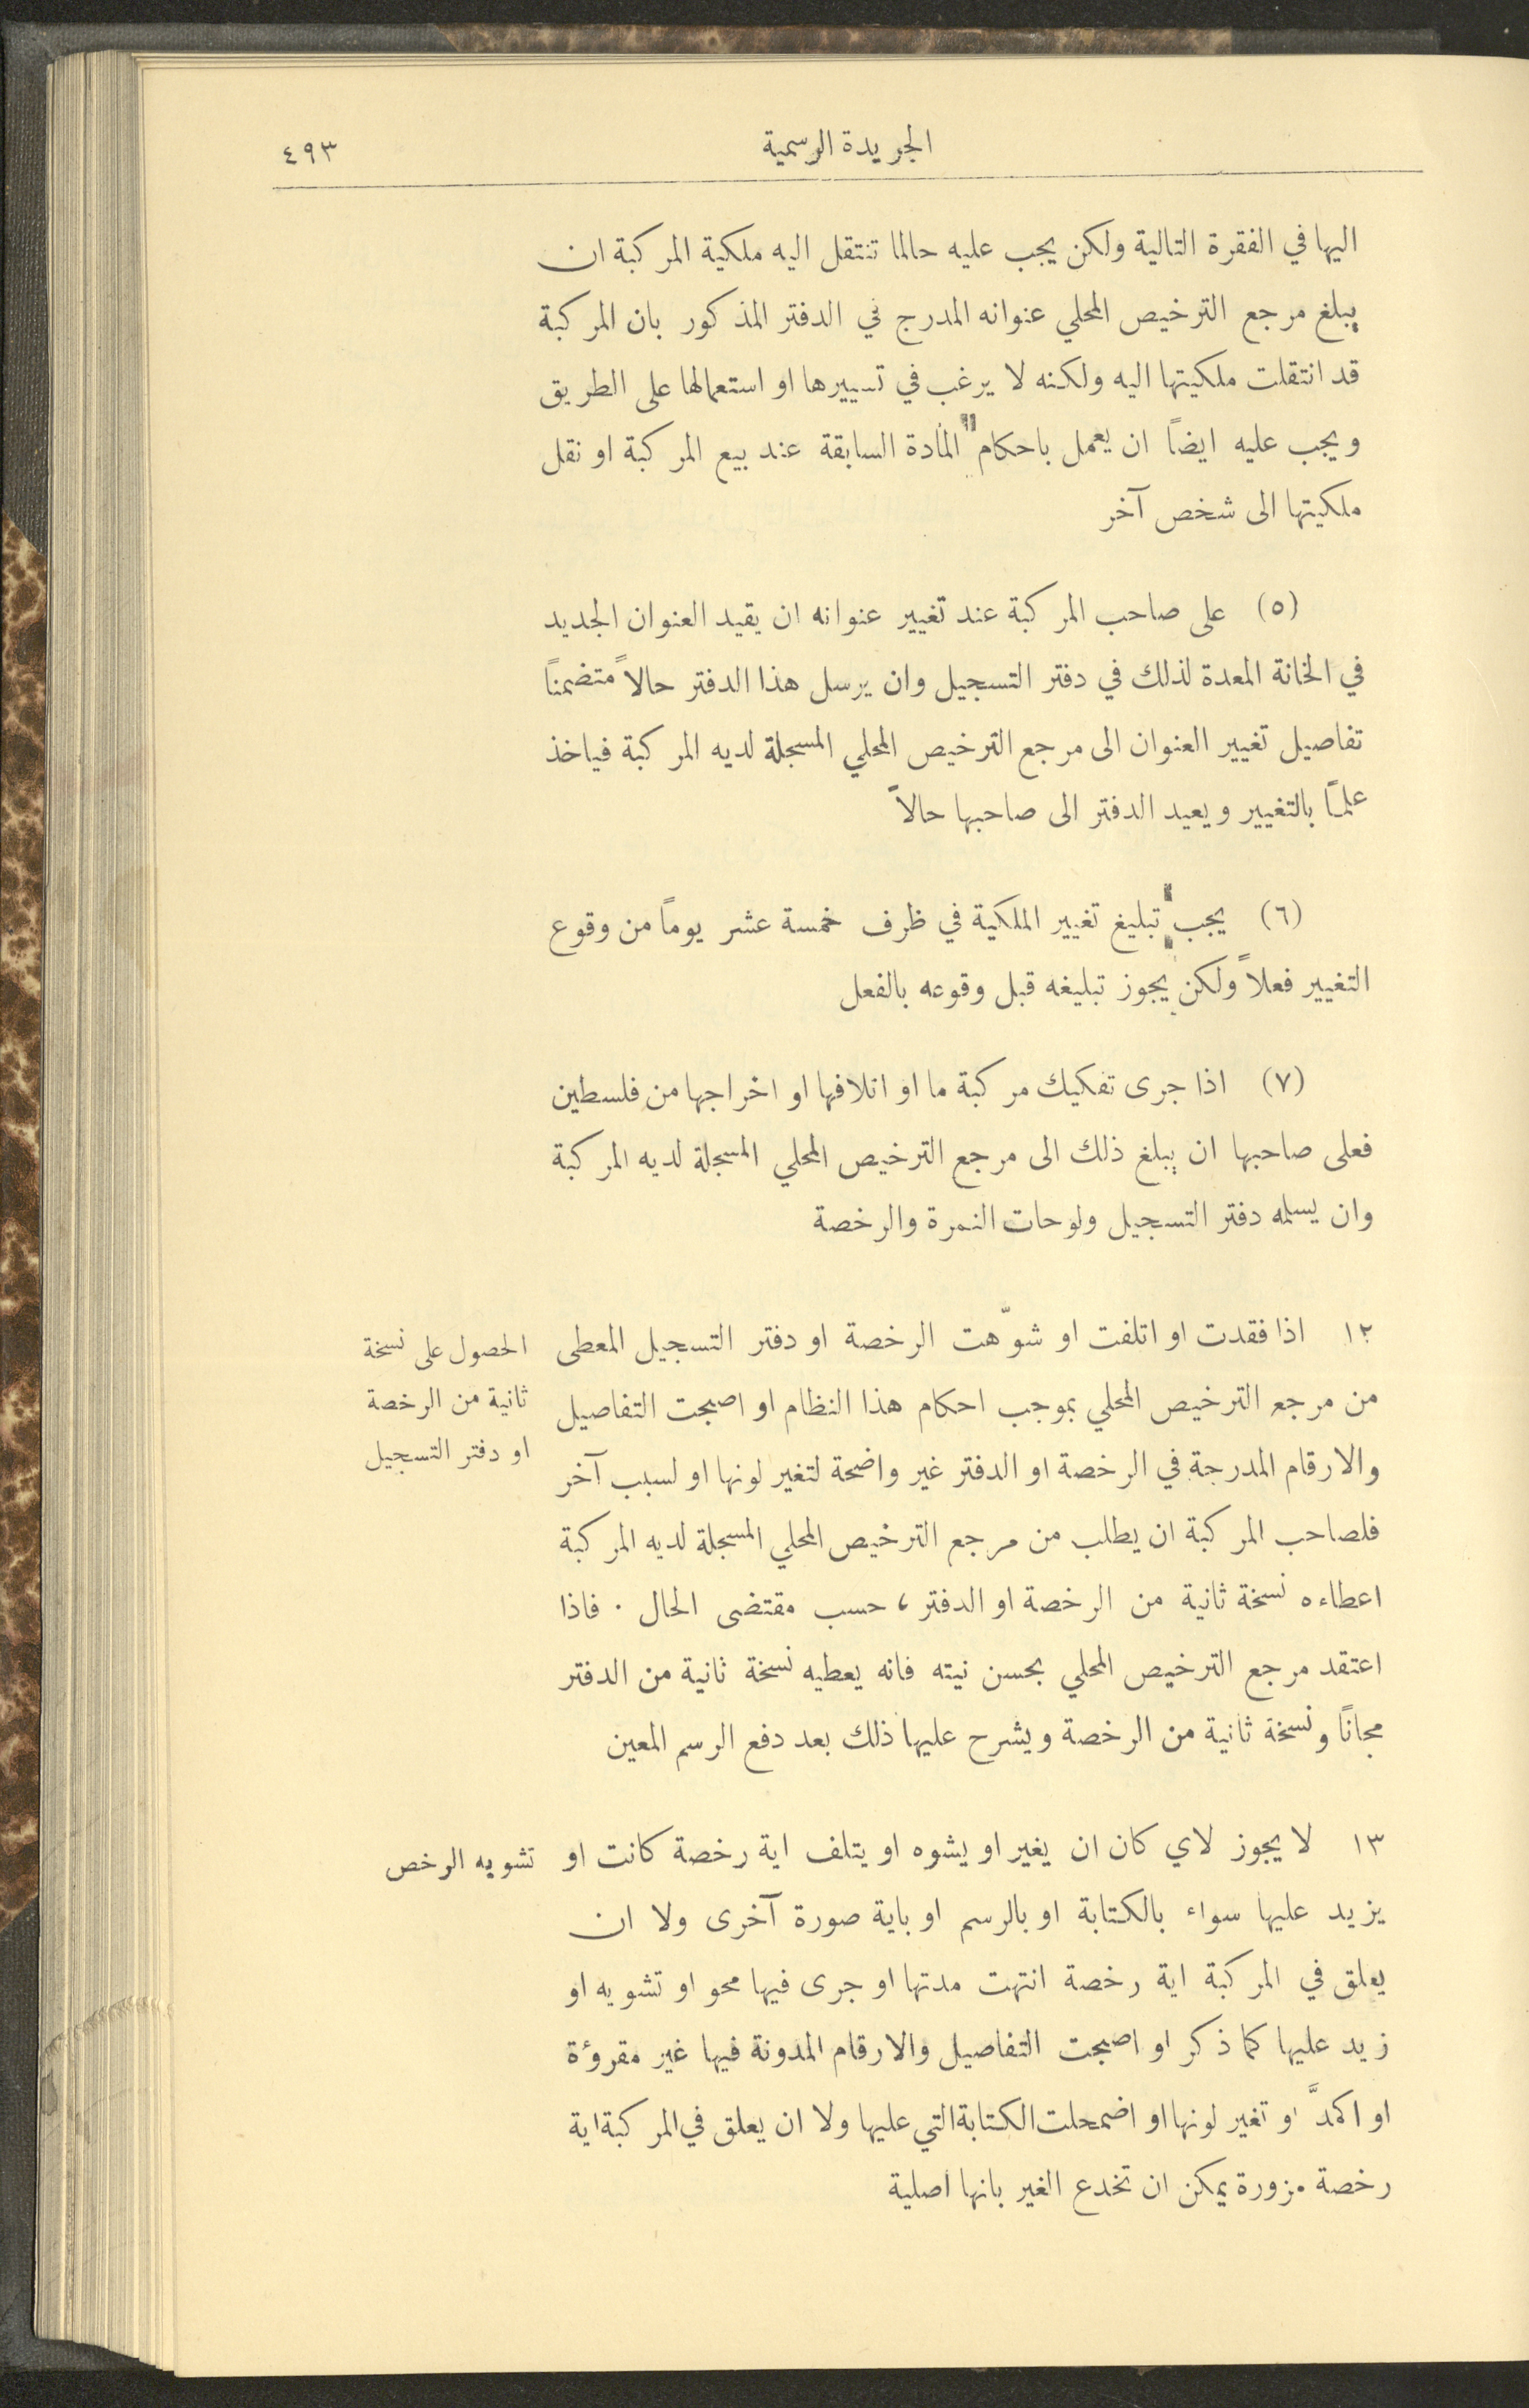 الجريدة الرسمية
٤٩٣
اليها في الفقرة التالية ولكن يجب عليه حالما تنتقل اليه ملكية المركبة ان
يبلغ مرجع الترخيص المحلي عنوانه المدرج في الدفتر المذكور بان المركبة
قد انتقلت ملكيتها اليه ولكنه لا يرغب في تسييرها او استعمالها على الطريق
ويجب عليه ايضاً ان يعمل باحكام المادة السابقة عند بيع المركبة او نقل
ملكيتها الى شخص آخر
(٥) على صاحب المركبة عند تغيير عنوانه ان يقيد العنوان الجديد
في الخانة المعدة لذلك في دفتر التسجيل وان يرسل هذا الدفتر حالاً متضمناً
تفاصيل تغيير العنوان الى مرجع الترخيص المحلي المسجلة لديه المركبة فياخذ
علماً بالتغيير ويعيد الدفتر الى صاحبها حالاً
(٦) يجب تبليغ تغيير الملكية في ظرف خمسة عشر يوماً من وقوع
التغيير فعلاً ولكن يجوز تبليغه قبل وقوعه بالفعل
(٧) اذا جرى تفكيك مركبة ما او اتلافها او اخراجها من فلسطين
فعلى صاحبها ان يبلغ ذلك الى مرجع الترخيص المحلي المسجلة لديه المركبة
وان يسلمه دفتر التسجيل ولوحات النمرة والرخصة
١٢ اذا فقدت او اتلفت او شوّهت الرخصة او دفتر التسجيل المعطى
من مرجع الترخيص المحلي بموجب احكام هذا النظام او اصبحت التفاصيل
والارقام المدرجة في الرخصة او الدفتر غير واضحة لتغير لونها او لسبب آخر
فلصاحب المركبة ان يطلب من مرجع الترخيص المحلي المسجلة لديه المركبة
اعطاءه نسخة ثانية من الرخصة او الدفتر، حسب مقتضى الحال . فاذا
اعتقد مرجع الترخيص المحلي بحسن نيته فانه يعطيه نسخة ثانية من الدفتر
مجاناً ونسخة ثانية من الرخصة ويشرح عليها ذلك بعد دفع الرسم المعين
الحصول على نسخة
ثانية من الرخصة
او دفتر التسجيل
١٣ لا يجوز لاي كان ان يغير او يشوه او يتلف اية رخصة كانت او
يزيد عليها سواء بالكتابة او بالرسم او باية صورة آخرى ولا ان
يعلق في المركبة اية رخصة انتهت مدتها او جرى فيها محو او تشويه او
زيد عليها كما ذكر او اصبحت التفاصيل والارقام المدونة فيها غير مقروءة
او اكمدَّ او تغير لونها او اضمحلت الكتابة التي عليها ولا ان يعلق في المركبة اية
رخصة مزورة يمكن ان تخدع الغير بانها اصلية
تشويه الرخص